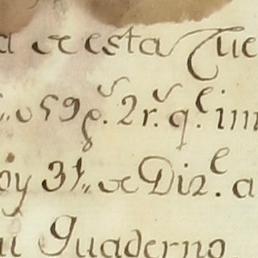 a de esta Cue
59 p.s 2 r.s q.e im
oy 31,, de Diz.e a
Quaderno